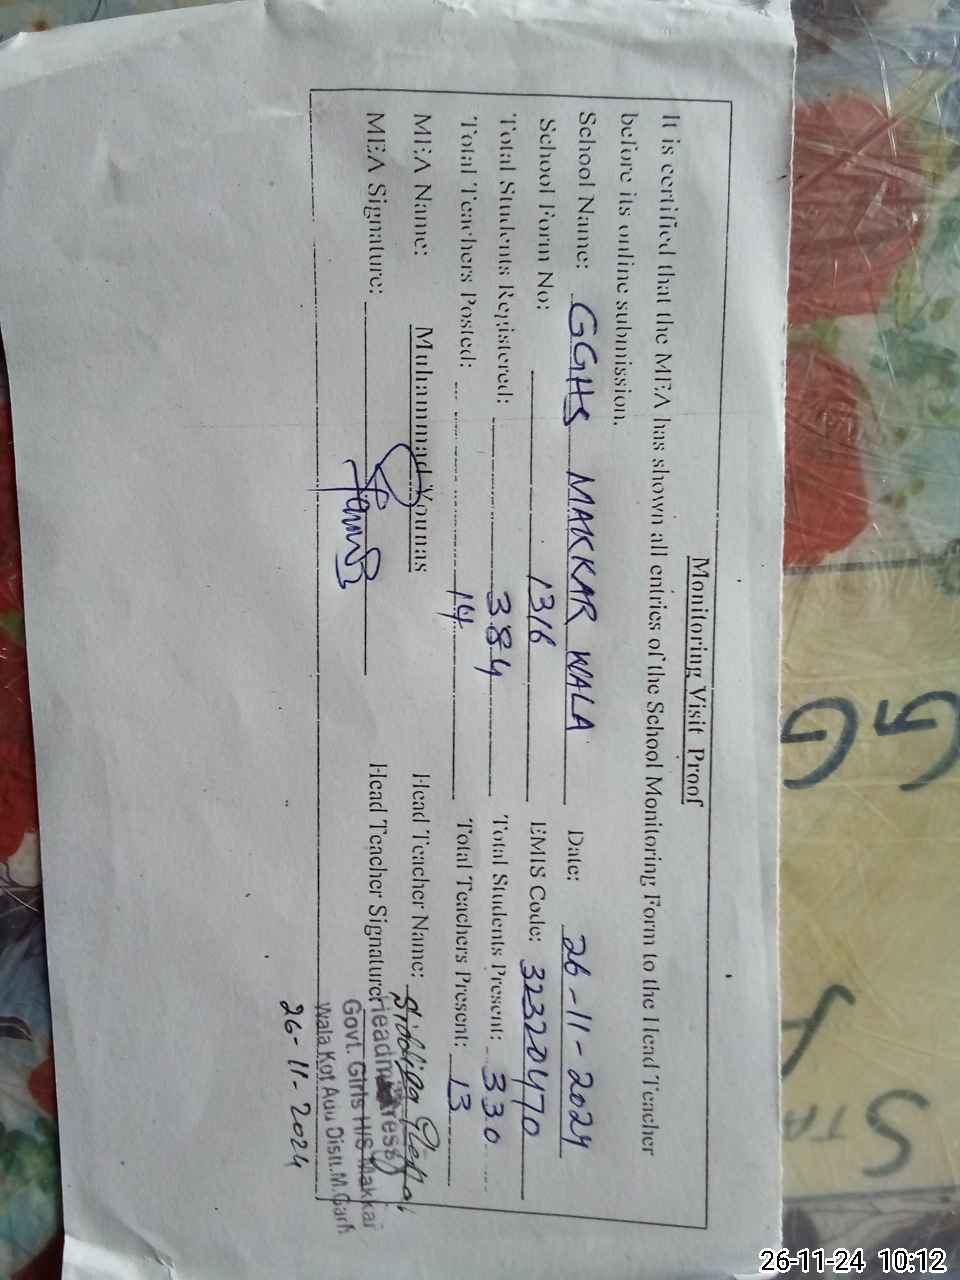 Monitoring Visit Proof
It is certified that the MEA has shown all entries of the School Monitoring Form to the Head Teacher
before its online submission.
School Name: GGHS MAKKAR WALA Date: 26-11-2024
School Form No: 1316 EMIS Code: 32320470
Total Students Registered: 384 Total Students Present: 330
Total Teachers Posted: 14 Total Teachers Present: 13
MEA Name: Muhammad Younas Head Teacher Name: Siddiqa
MEA Signature: Head Teacher Signature:
Headmistress
Govt. Girls H/S Makkar
Wala Kot Adu Distt. M.Garh
26-11-2024
GG
STA
26-11-24 10:12